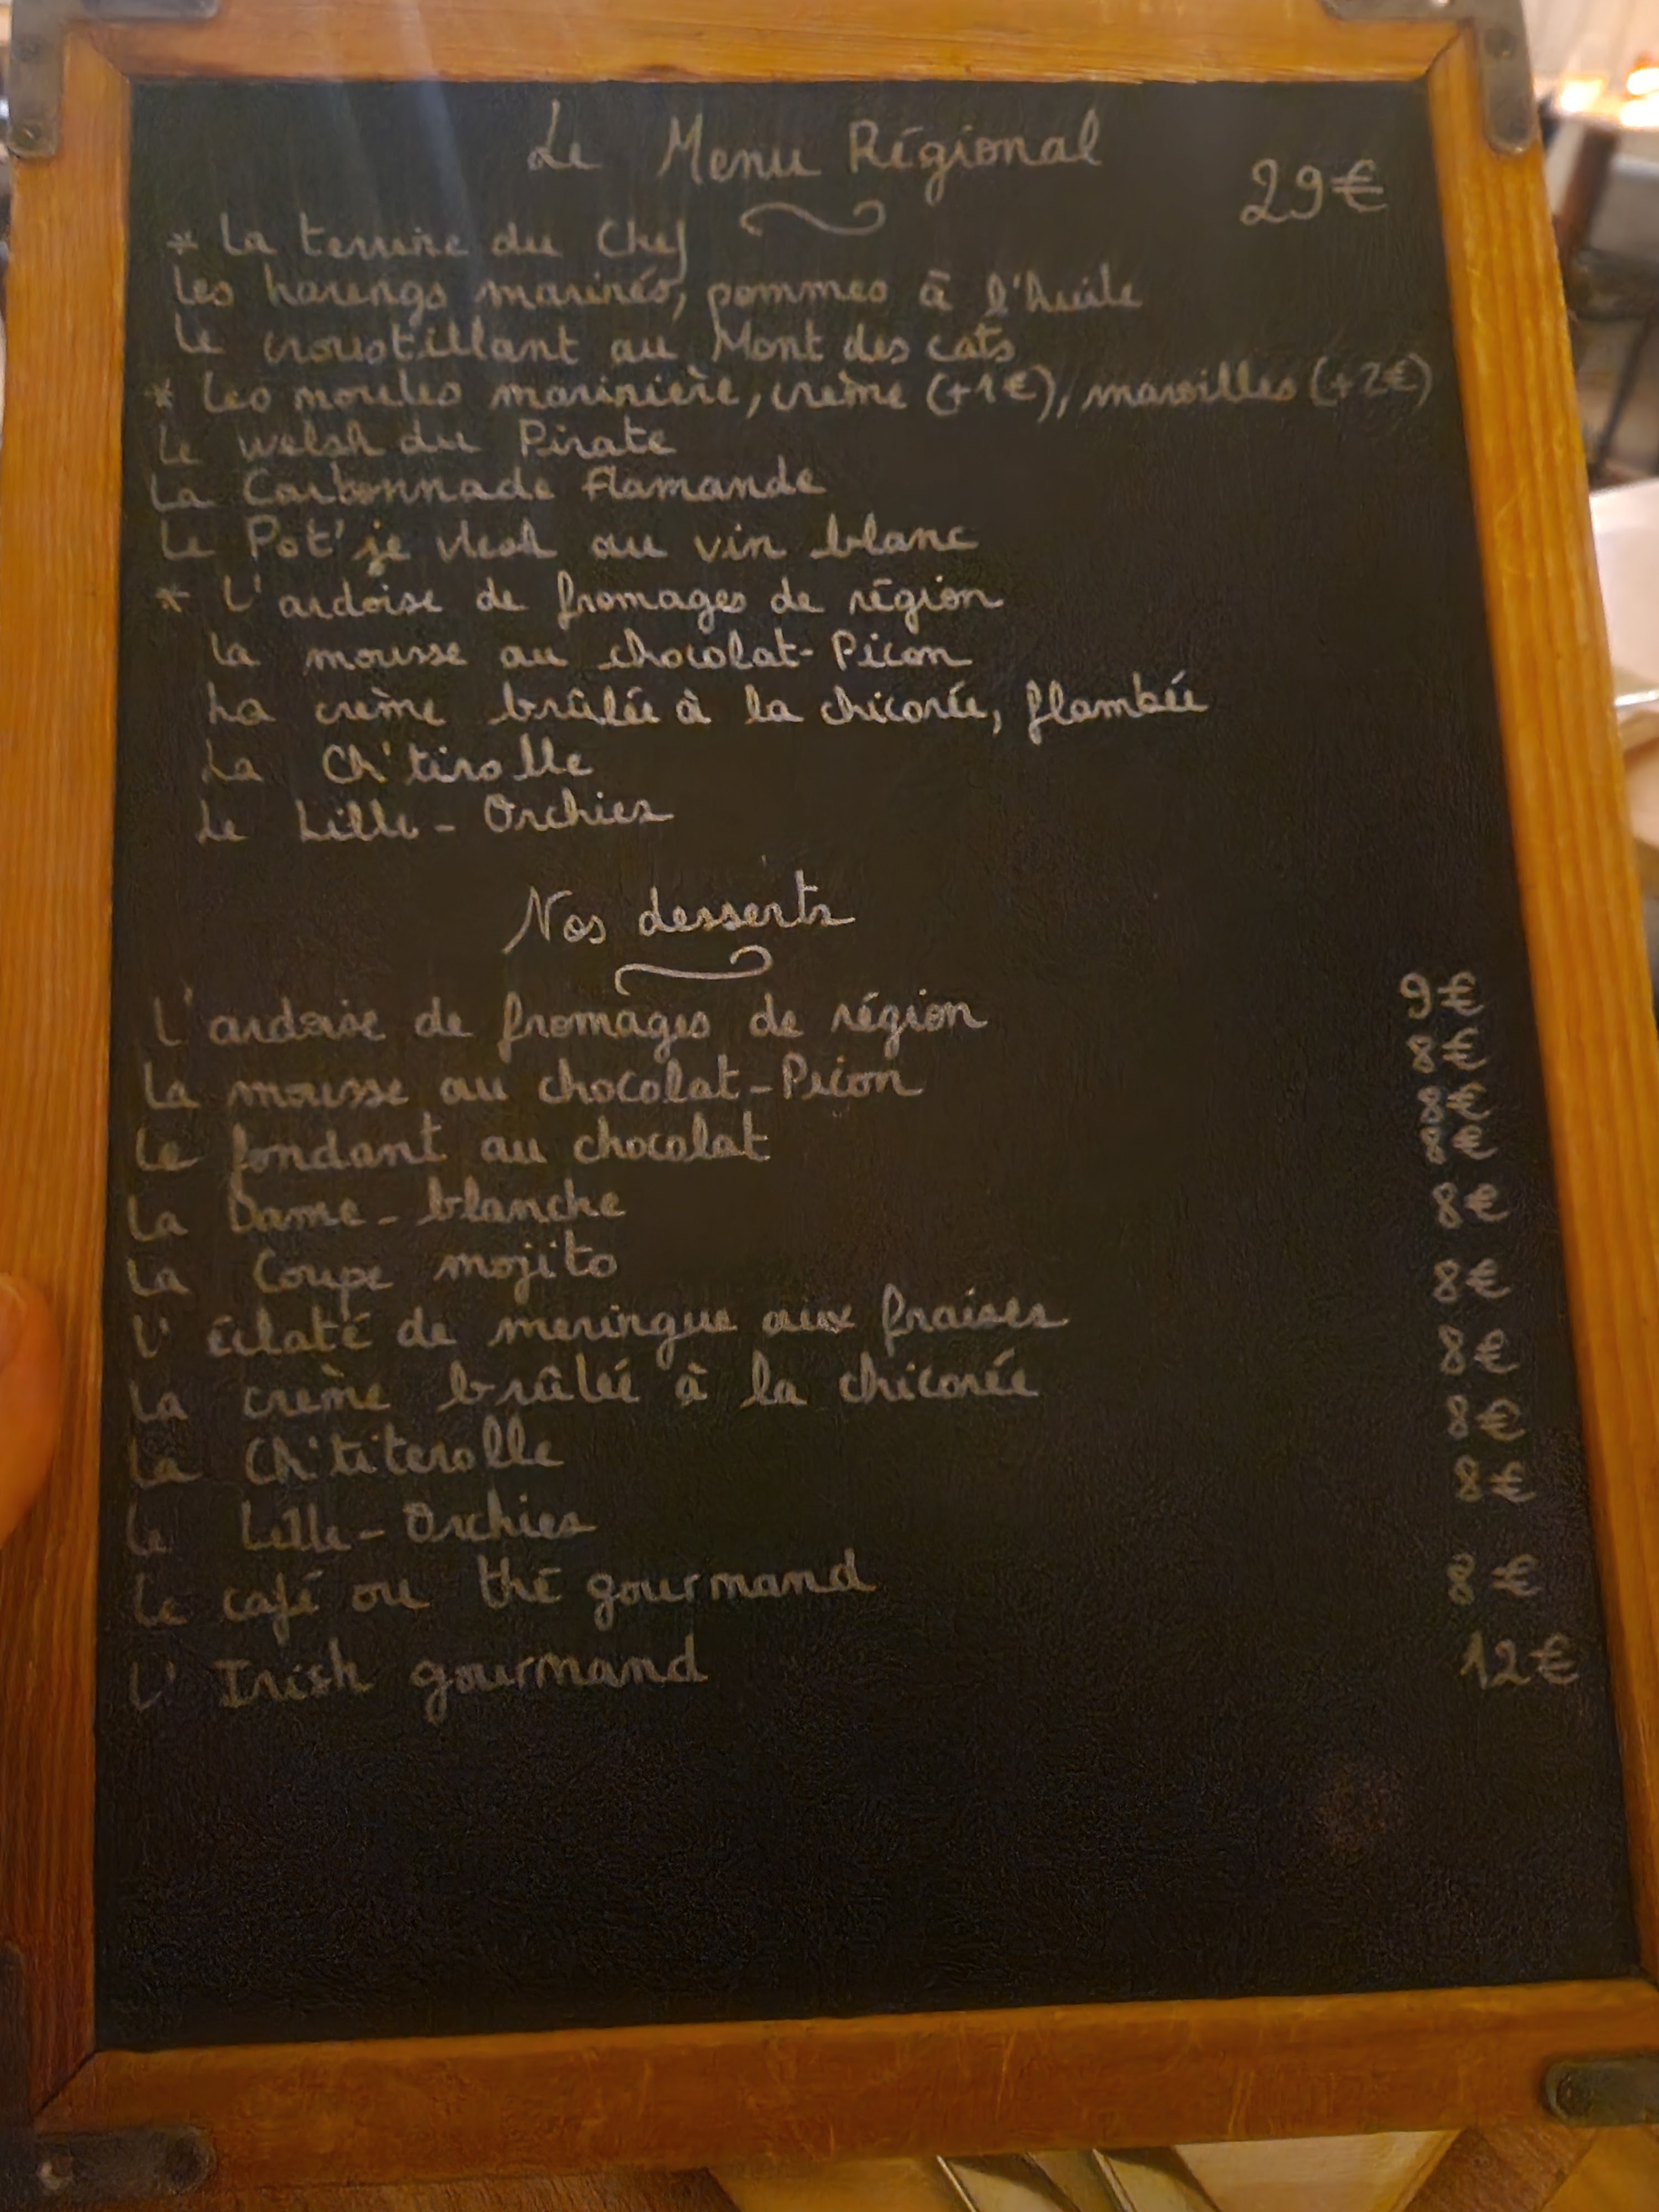 Le Menu Régional
29€
* La terrine du Chef
Les harengs marinés, pommes à l'huile
Le croustillant au Mont des cats
* Les moules marinière, crème (+1€), maroilles (+2€)
Le welsh du Pirate
La Carbonnade flamande
Le Pot'je vlesh au vin blanc
* L'ardoise de fromages de région
La mousse au chocolat-Picon
La crème brûlée à la chicorée, flambée
La Ch'tirolle
Le Lille-Orchies
Nos desserts
L'ardoise de fromages de région 9€
La mousse au chocolat-Picon 8€
Le fondant au chocolat 8€
La Dame-blanche 8€
La Coupe mojito 8€
L'éclaté de meringue aux fraises 8€
La crème brûlée à la chicorée 8€
La Ch'titerolle 8€
Le Lille-Orchies 8€
Le café ou thé gourmand 8€
L'Irish gourmand 12€